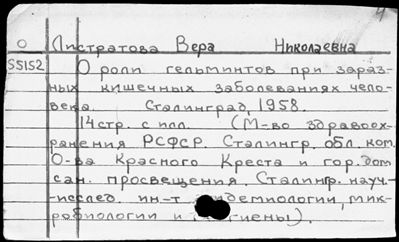 О Листратова Вера Николаевна
55152 О роли гельминтов при зараз-
ных кишечных заболеваниях чело-
века. Сталинград, 1958.
14 стр. с илл. (М-во здравоох-
ранения РСФСР. Сталингр. обл. ком.
О-ва Красного Креста и гор. дом
сан. просвещения. Сталингр. науч.-
-исслед. ин-т эпидемиологии, мик-
робиологии и гигиены).